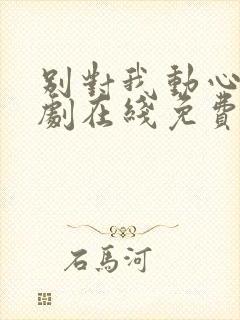 别對我動心
劇在綫免費
石馬河